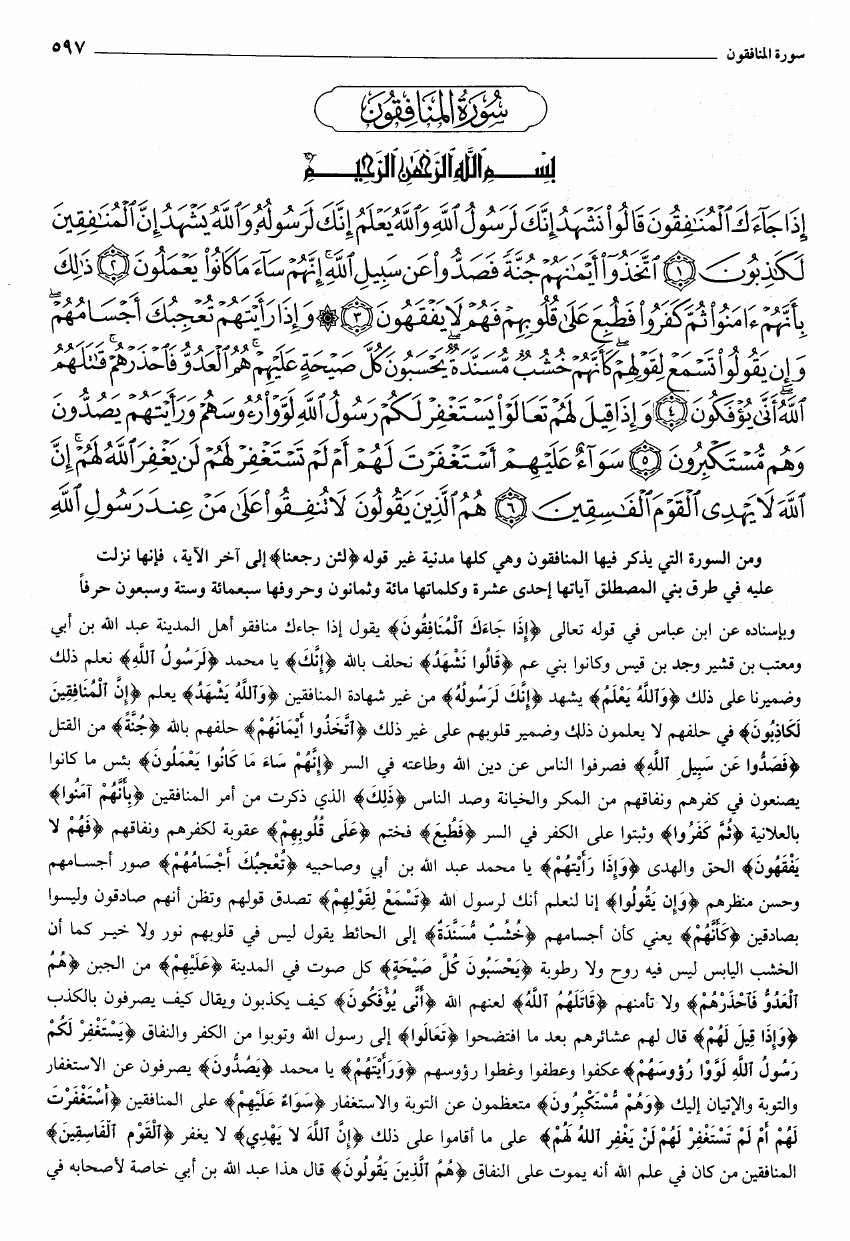 سورة المنافقون ٥٩٧
سُورَةُ المنَافِقُونَ
بِسْمِ ٱللَّهِ ٱلرَّحْمَٰنِ ٱلرَّحِيمِ
إِذَا جَآءَكَ ٱلْمُنَٰفِقُونَ قَالُوا۟ نَشْهَدُ إِنَّكَ لَرَسُولُ ٱللَّهِ وَٱللَّهُ يَعْلَمُ إِنَّكَ لَرَسُولُهُۥ وَٱللَّهُ يَشْهَدُ إِنَّ ٱلْمُنَٰفِقِينَ
لَكَٰذِبُونَ ﴿١﴾ ٱتَّخَذُوٓا۟ أَيْمَٰنَهُمْ جُنَّةً فَصَدُّوا۟ عَن سَبِيلِ ٱللَّهِ ۚ إِنَّهُمْ سَآءَ مَا كَانُوا۟ يَعْمَلُونَ ﴿٢﴾ ذَٰلِكَ
بِأَنَّهُمْ ءَامَنُوا۟ ثُمَّ كَفَرُوا۟ فَطُبِعَ عَلَىٰ قُلُوبِهِمْ فَهُمْ لَا يَفْقَهُونَ ﴿٣﴾ ۞ وَإِذَا رَأَيْتَهُمْ تُعْجِبُكَ أَجْسَامُهُمْ ۖ
وَإِن يَقُولُوا۟ تَسْمَعْ لِقَوْلِهِمْ ۖ كَأَنَّهُمْ خُشُبٌ مُّسَنَّدَةٌ ۖ يَحْسَبُونَ كُلَّ صَيْحَةٍ عَلَيْهِمْ ۚ هُمُ ٱلْعَدُوُّ فَٱحْذَرْهُمْ ۚ قَٰتَلَهُمُ
ٱللَّهُ ۖ أَنَّىٰ يُؤْفَكُونَ ﴿٤﴾ وَإِذَا قِيلَ لَهُمْ تَعَالَوْا۟ يَسْتَغْفِرْ لَكُمْ رَسُولُ ٱللَّهِ لَوَّوْا۟ رُءُوسَهُمْ وَرَأَيْتَهُمْ يَصُدُّونَ
وَهُم مُّسْتَكْبِرُونَ ﴿٥﴾ سَوَآءٌ عَلَيْهِمْ أَسْتَغْفَرْتَ لَهُمْ أَمْ لَمْ تَسْتَغْفِرْ لَهُمْ لَن يَغْفِرَ ٱللَّهُ لَهُمْ ۚ إِنَّ
ٱللَّهَ لَا يَهْدِى ٱلْقَوْمَ ٱلْفَٰسِقِينَ ﴿٦﴾ هُمُ ٱلَّذِينَ يَقُولُونَ لَا تُنفِقُوا۟ عَلَىٰ مَنْ عِندَ رَسُولِ ٱللَّهِ
ومن السورة التي يذكر فيها المنافقون وهي كلها مدنية غير قوله ﴿لئن رجعنا﴾ إلى آخر الآية، فإنها نزلت
عليه في طرق بني المصطلق آياتها إحدى عشرة وكلماتها مائة وثمانون وحروفها سبعمائة وستة وسبعون حرفاً
وبإسناده عن ابن عباس في قوله تعالى ﴿إِذَا جَاءَكَ ٱلْمُنَافِقُونَ﴾ يقول إذا جاءك منافقو أهل المدينة عبد الله بن أبي
ومعتب بن قشير وجد بن قيس وكانوا بني عم ﴿قَالُوا نَشْهَدُ﴾ نحلف بالله ﴿إِنَّكَ﴾ يا محمد ﴿لَرَسُولُ ٱللَّهِ﴾ نعلم ذلك
وضميرنا على ذلك ﴿وَٱللَّهُ يَعْلَمُ﴾ يشهد ﴿إِنَّكَ لَرَسُولُهُ﴾ من غير شهادة المنافقين ﴿وَٱللَّهُ يَشْهَدُ﴾ يعلم ﴿إِنَّ ٱلْمُنَافِقِينَ
لَكَاذِبُونَ﴾ في حلفهم لا يعلمون ذلك وضمير قلوبهم على غير ذلك ﴿ٱتَّخَذُوا أَيْمَانَهُمْ﴾ حلفهم بالله ﴿جُنَّةً﴾ من القتل
﴿فَصَدُّوا عَن سَبِيلِ ٱللَّهِ﴾ فصرفوا الناس عن دين الله وطاعته في السر ﴿إِنَّهُمْ سَاءَ مَا كَانُوا يَعْمَلُونَ﴾ بئس ما كانوا
يصنعون في كفرهم ونفاقهم من المكر والخيانة وصد الناس ﴿ذَلِكَ﴾ الذي ذكرت من أمر المنافقين ﴿بِأَنَّهُمْ آمَنُوا﴾
بالعلانية ﴿ثُمَّ كَفَرُوا﴾ وثبتوا على الكفر في السر ﴿فَطُبِعَ﴾ فختم ﴿عَلَى قُلُوبِهِمْ﴾ عقوبة لكفرهم ونفاقهم ﴿فَهُمْ لا
يَفْقَهُونَ﴾ الحق والهدى ﴿وَإِذَا رَأَيْتَهُمْ﴾ يا محمد عبد الله بن أبي وصاحبيه ﴿تُعْجِبُكَ أَجْسَامُهُمْ﴾ صور أجسامهم
وحسن منظرهم ﴿وَإِن يَقُولُوا﴾ إنا لنعلم أنك لرسول الله ﴿تَسْمَعْ لِقَوْلِهِمْ﴾ تصدق قولهم وتظن أنهم صادقون وليسوا
بصادقين ﴿كَأَنَّهُمْ﴾ يعني كأن أجسامهم ﴿خُشُبٌ مُسَنَّدَةٌ﴾ إلى الحائط يقول ليس في قلوبهم نور ولا خير كما أن
الخشب اليابس ليس فيه روح ولا رطوبة ﴿يَحْسَبُونَ كُلَّ صَيْحَةٍ﴾ كل صوت في المدينة ﴿عَلَيْهِمْ﴾ من الجبن ﴿هُمُ
ٱلْعَدُوُّ فَٱحْذَرْهُمْ﴾ ولا تأمنهم ﴿قَاتَلَهُمُ ٱللَّهُ﴾ لعنهم الله ﴿أَنَّى يُؤْفَكُونَ﴾ كيف يكذبون ويقال كيف يصرفون بالكذب
﴿وَإِذَا قِيلَ لَهُمْ﴾ قال لهم عشائرهم بعد ما افتضحوا ﴿تَعَالَوْا﴾ إلى رسول الله وتوبوا من الكفر والنفاق ﴿يَسْتَغْفِرْ لَكُمْ
رَسُولُ ٱللَّهِ لَوَّوْا رُؤُوسَهُمْ﴾ عكفوا وعطفوا وغطوا رؤوسهم ﴿وَرَأَيْتَهُمْ﴾ يا محمد ﴿يَصُدُّونَ﴾ يصرفون عن الاستغفار
والتوبة والإتيان إليك ﴿وَهُمْ مُسْتَكْبِرُونَ﴾ متعظمون عن التوبة والاستغفار ﴿سَوَاءٌ عَلَيْهِمْ﴾ على المنافقين ﴿أَسْتَغْفَرْتَ
لَهُمْ أَمْ لَمْ تَسْتَغْفِرْ لَهُمْ لَنْ يَغْفِرَ اللهُ لَهُمْ﴾ على ما أقاموا على ذلك ﴿إِنَّ ٱللَّهَ لَا يَهْدِي﴾ لا يغفر ﴿ٱلْقَوْمِ ٱلْفَاسِقِينَ﴾
المنافقين من كان في علم الله أنه يموت على النفاق ﴿هُمُ ٱلَّذِينَ يَقُولُونَ﴾ قال هذا عبد الله بن أبي خاصة لأصحابه في